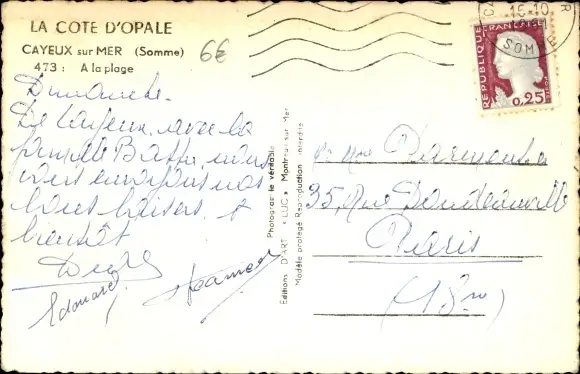 LA COTE D'OPALE
CAYEUX sur MER (Somme)
473 : A la plage
6€
15-10
SOM
RÉPUBLIQUE
FRANÇAISE
0,25
Dimanche.
De Cayeux, avec la
famille nous
vous envoyons nos
bons baisers. et
bientôt
Edouard
Photographie véritable
Editions D'ART " LUG " Montreuil sur Mer
Modèle protégé Reproduction interdite
35, Rue Doudeauville
Paris
(18me)